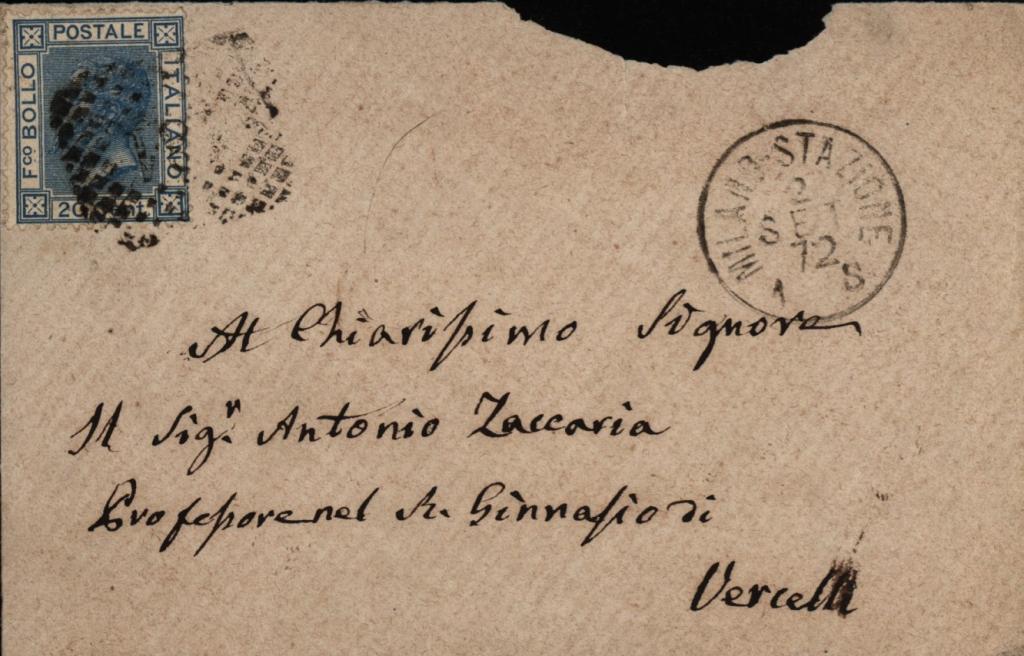 POSTALE
Fco BOLLO
ITALIANO
20
MILANO-STAZIONE
2
SET
72
1 S S
Al Chiarissimo Signore
Il Sigr. Antonio Zaccaria
Professore nel R. Ginnasio di
Vercelli